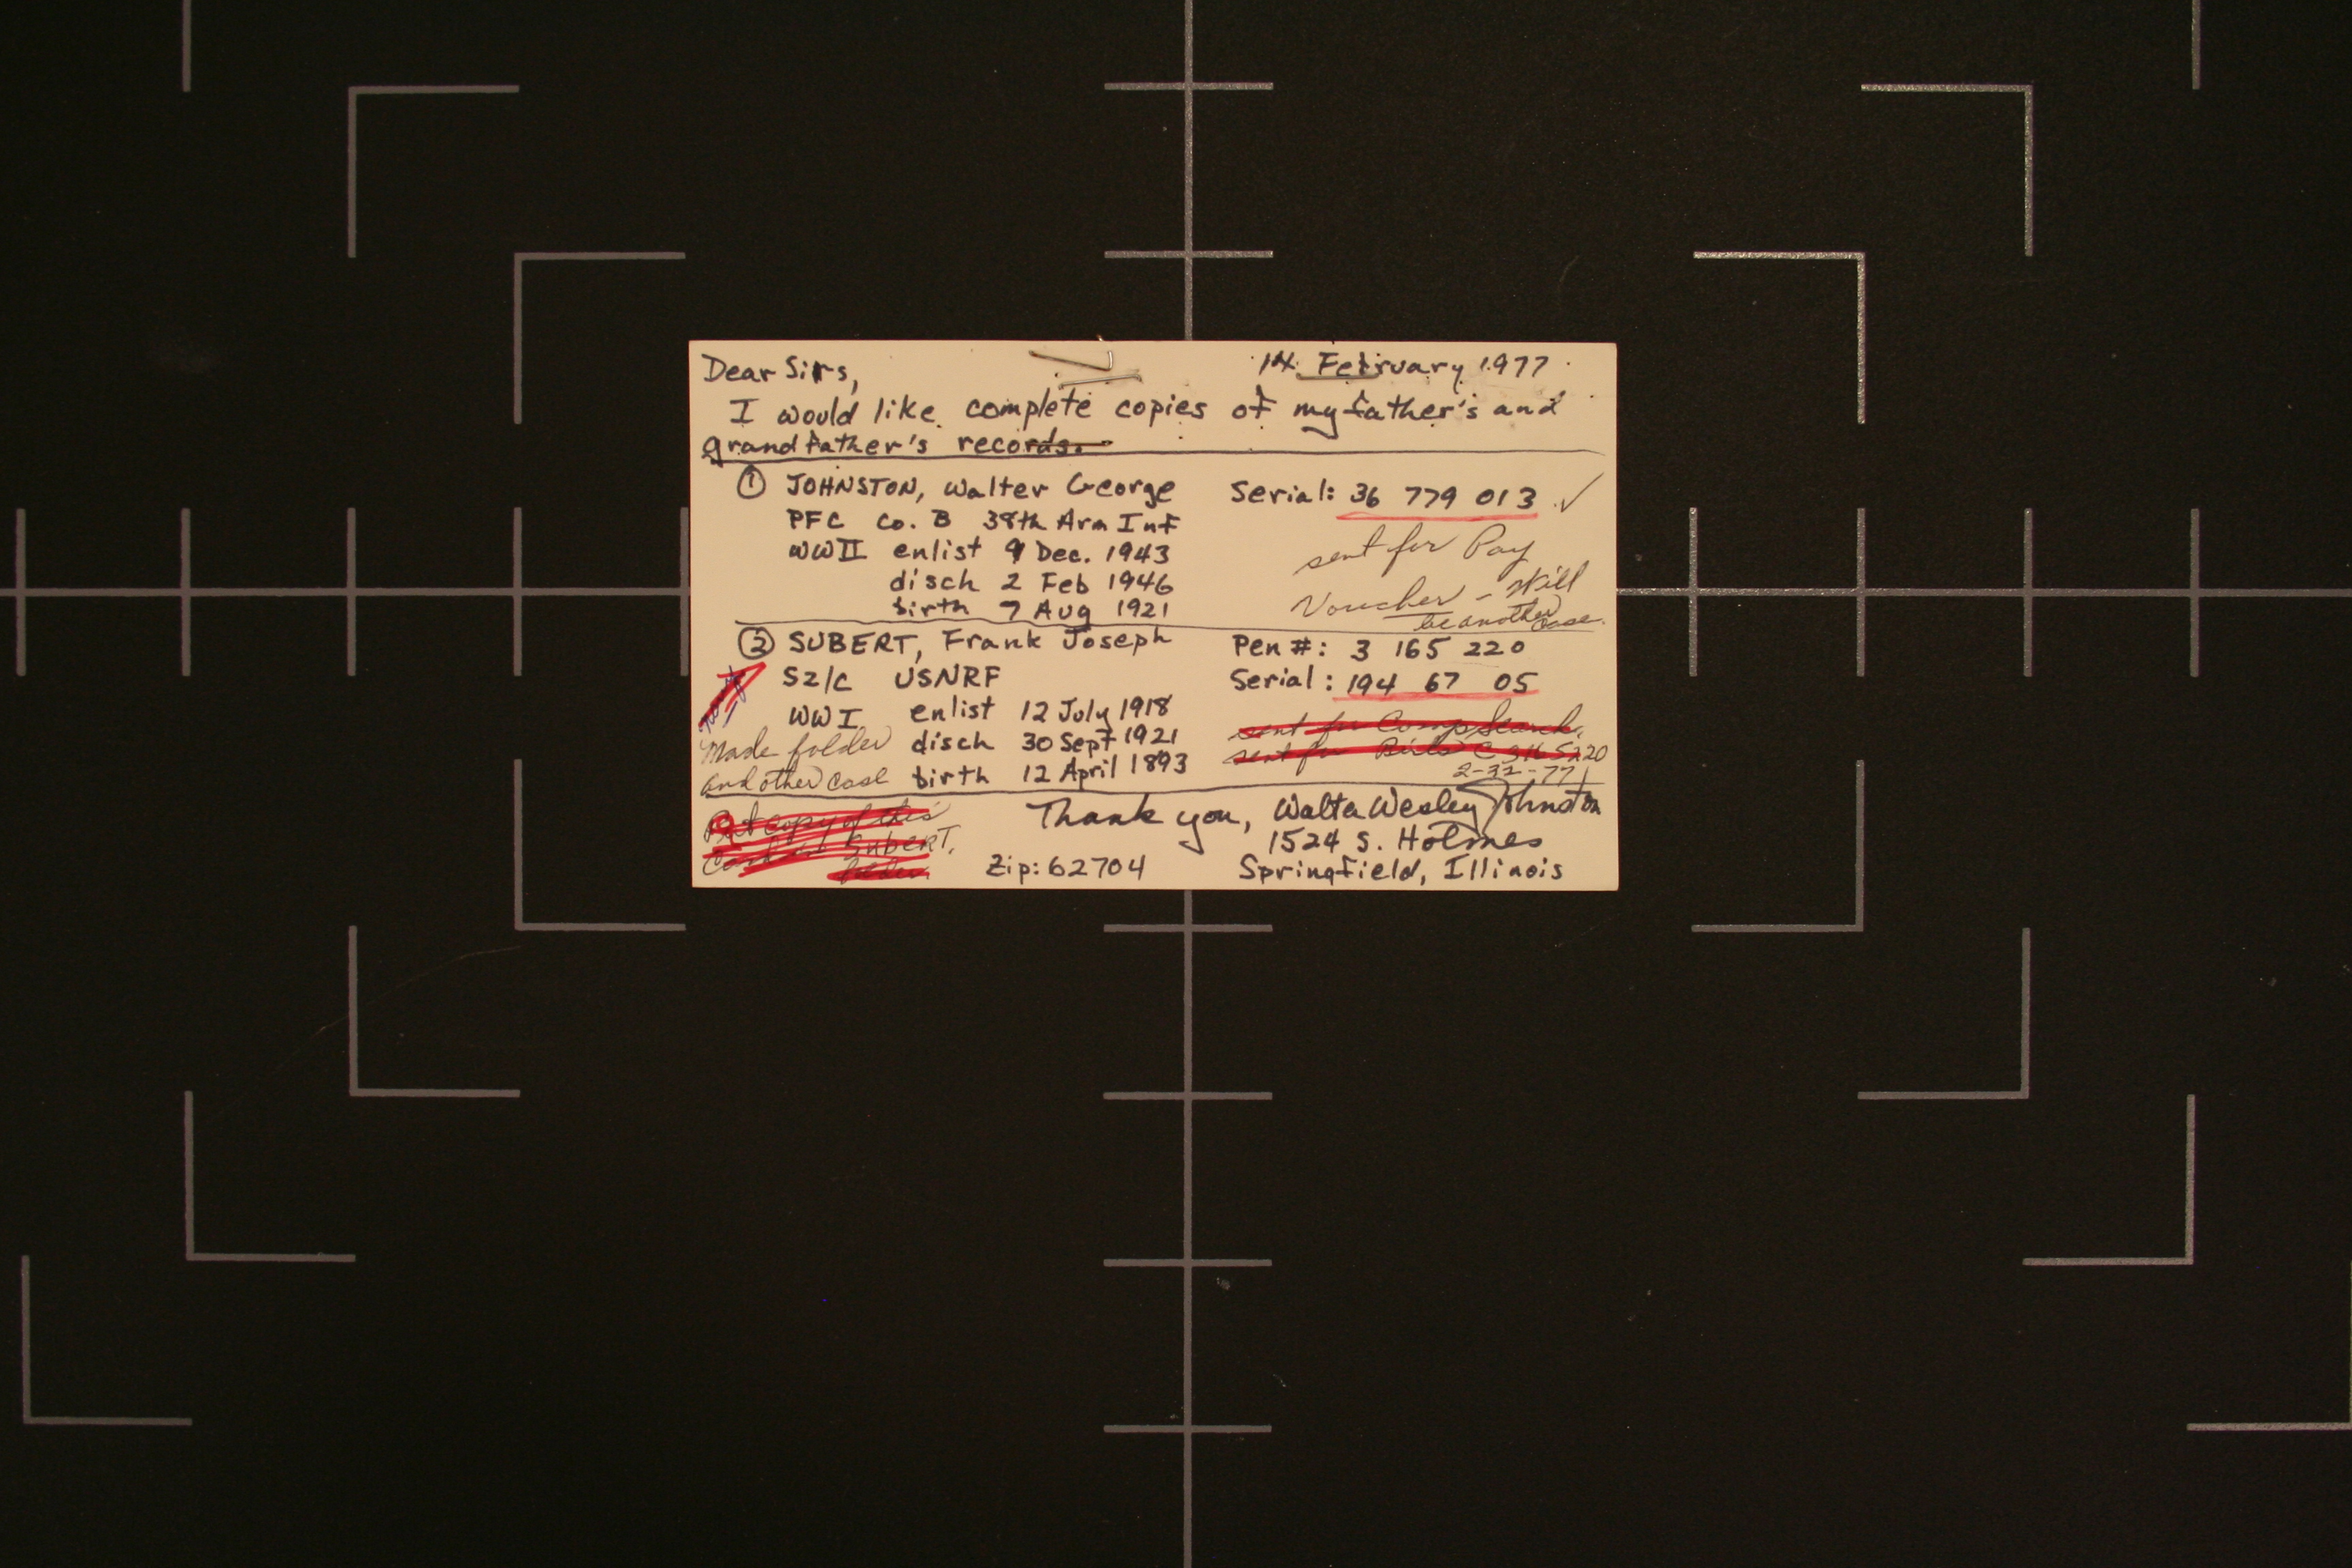 Dear Sirs,
14 February 1977
I would like complete copies of my father's and
grandfather's records.
① JOHNSTON, Walter George
Serial: 36 779 013 ✓
PFC Co. B 38th Arm Inf
WWII enlist 9 Dec. 1943
sent for Pay
disch 2 Feb 1946
Voucher - Will
birth 7 Aug 1921
be another case.
② SUBERT, Frank Joseph
Pen #: 3 165 220
S2/C USNRF
Serial: 194 67 05
WWI enlist 12 July 1918
sent for Comp Search.
Made folder
disch 30 Sept 1921
sent for Birls C 3165220
and other case
birth 12 April 1893
Put copy of this
Thank you, Walter Wesley Johnston
SUBERT,
1524 S. Holmes
folder.
Zip: 62704
Springfield, Illinois